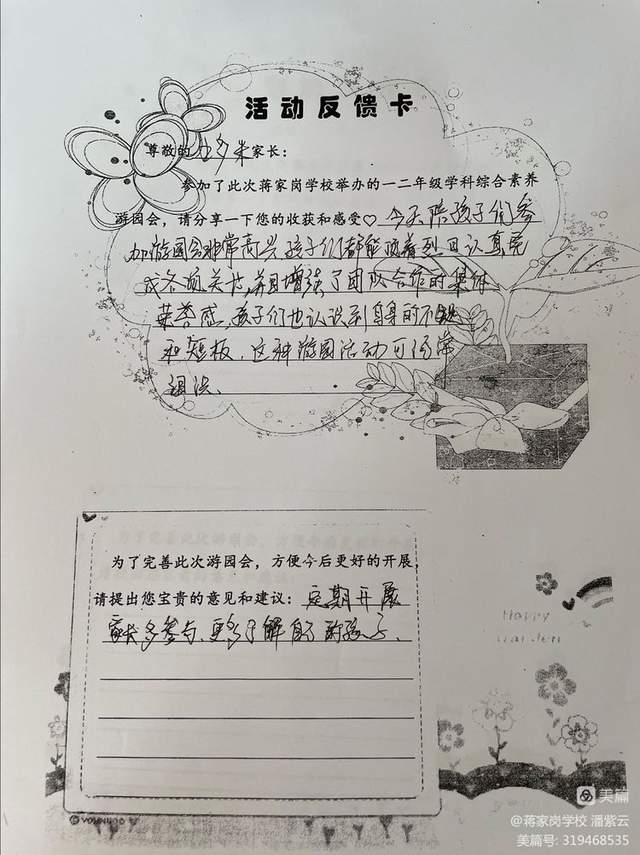 活动反馈卡
尊敬的 家长：
参加了此次蒋家岗学校举办的一二年级学科综合素养
游园会，请分享一下您的收获和感受♡ 今天陪孩子们参
加游园会非常高兴，孩子们都能顶着烈日认真完
成各项关卡，并且增强了团队合作的集体
荣誉感，孩子们也认识到自身的不
和短板，这种游园活动可经常
组织、
为了完善此次游园会，方便今后更好的开展，
请提出您宝贵的意见和建议：定期开展
家长多参与，更多了解自己的孩子、
Happy
Garden
美篇
@蒋家岗学校 潘紫云
美篇号: 319468535